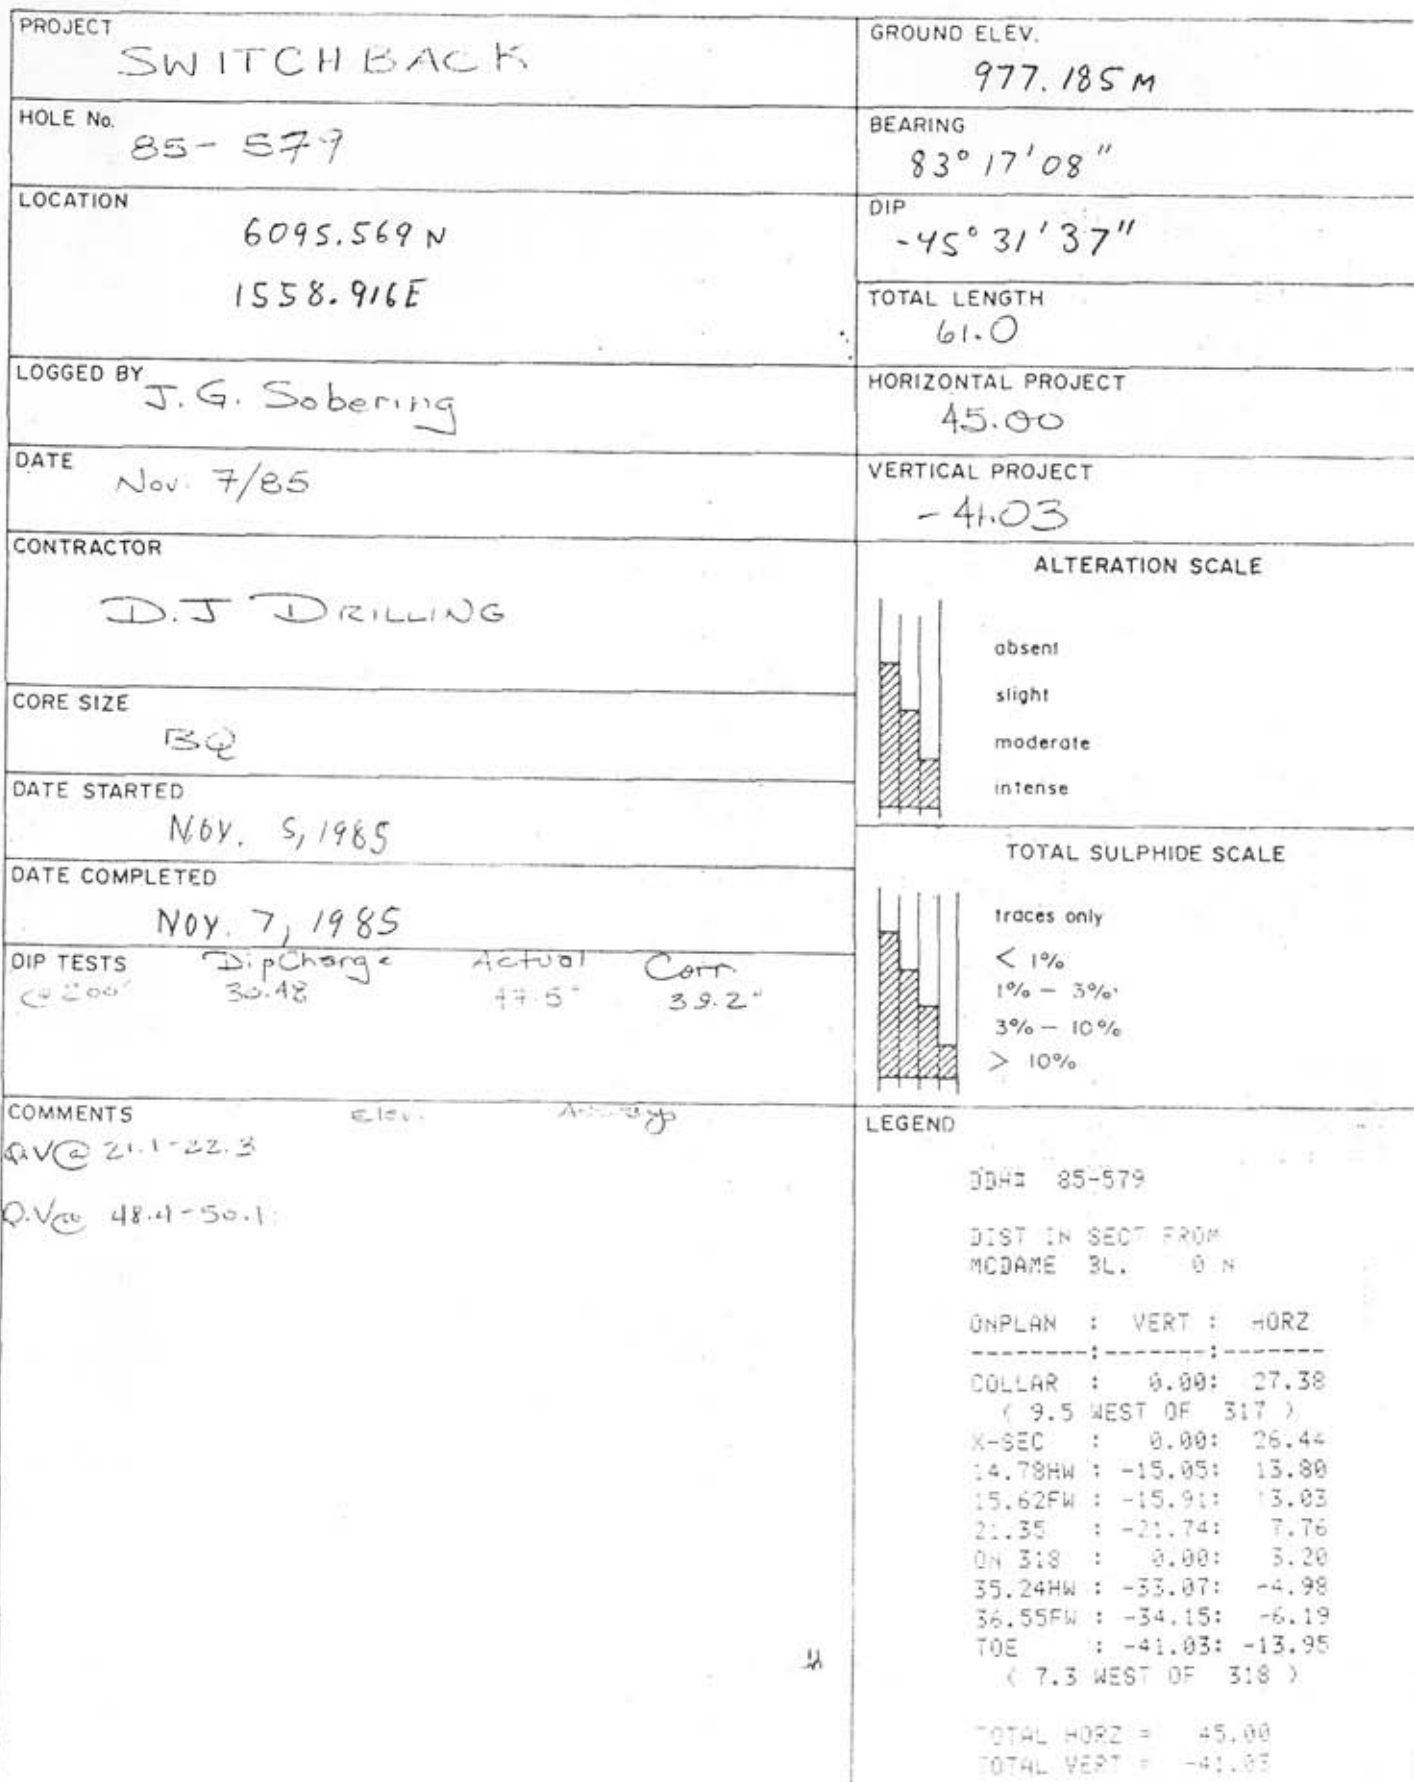 PROJECT
SWITCHBACK
HOLE No.
85-579
LOCATION
6095.569 N
1558.916E
LOGGED BY
J.G. Sobering
DATE
Nov. 7/85
CONTRACTOR
D.J DRILLING
CORE SIZE
BQ
DATE STARTED
NOV. 5, 1985
DATE COMPLETED
NOV. 7, 1985
DIP TESTS DipCharge Actual Corr
@ 200' 30.48 47.5° 39.2°
COMMENTS Elev.
Q.V@ 21.1-22.3
Q.V@ 48.4-50.1
GROUND ELEV.
977.185 M
BEARING
83° 17' 08"
DIP
-45° 31' 37"
TOTAL LENGTH
61.0
HORIZONTAL PROJECT
45.00
VERTICAL PROJECT
-41.03
ALTERATION SCALE
absent
slight
moderate
intense
TOTAL SULPHIDE SCALE
traces only
< 1%
1% - 3%
3% - 10%
> 10%
LEGEND
DDH# 85-579
DIST IN SECT FROM
MCDAME BL. 0 N
ONPLAN : VERT : HORZ
--------:-------:-------
COLLAR : 0.00: 27.38
( 9.5 WEST OF 317 )
X-SEC : 0.00: 26.44
14.78HW : -15.05: 13.80
15.62FW : -15.91: 13.03
21.35 : -21.74: 7.76
ON 318 : 0.00: 3.20
35.24HW : -33.07: -4.98
36.55FW : -34.15: -6.19
TOE : -41.03: -13.95
( 7.3 WEST OF 318 )
TOTAL HORZ = 45.00
TOTAL VERT = -41.03